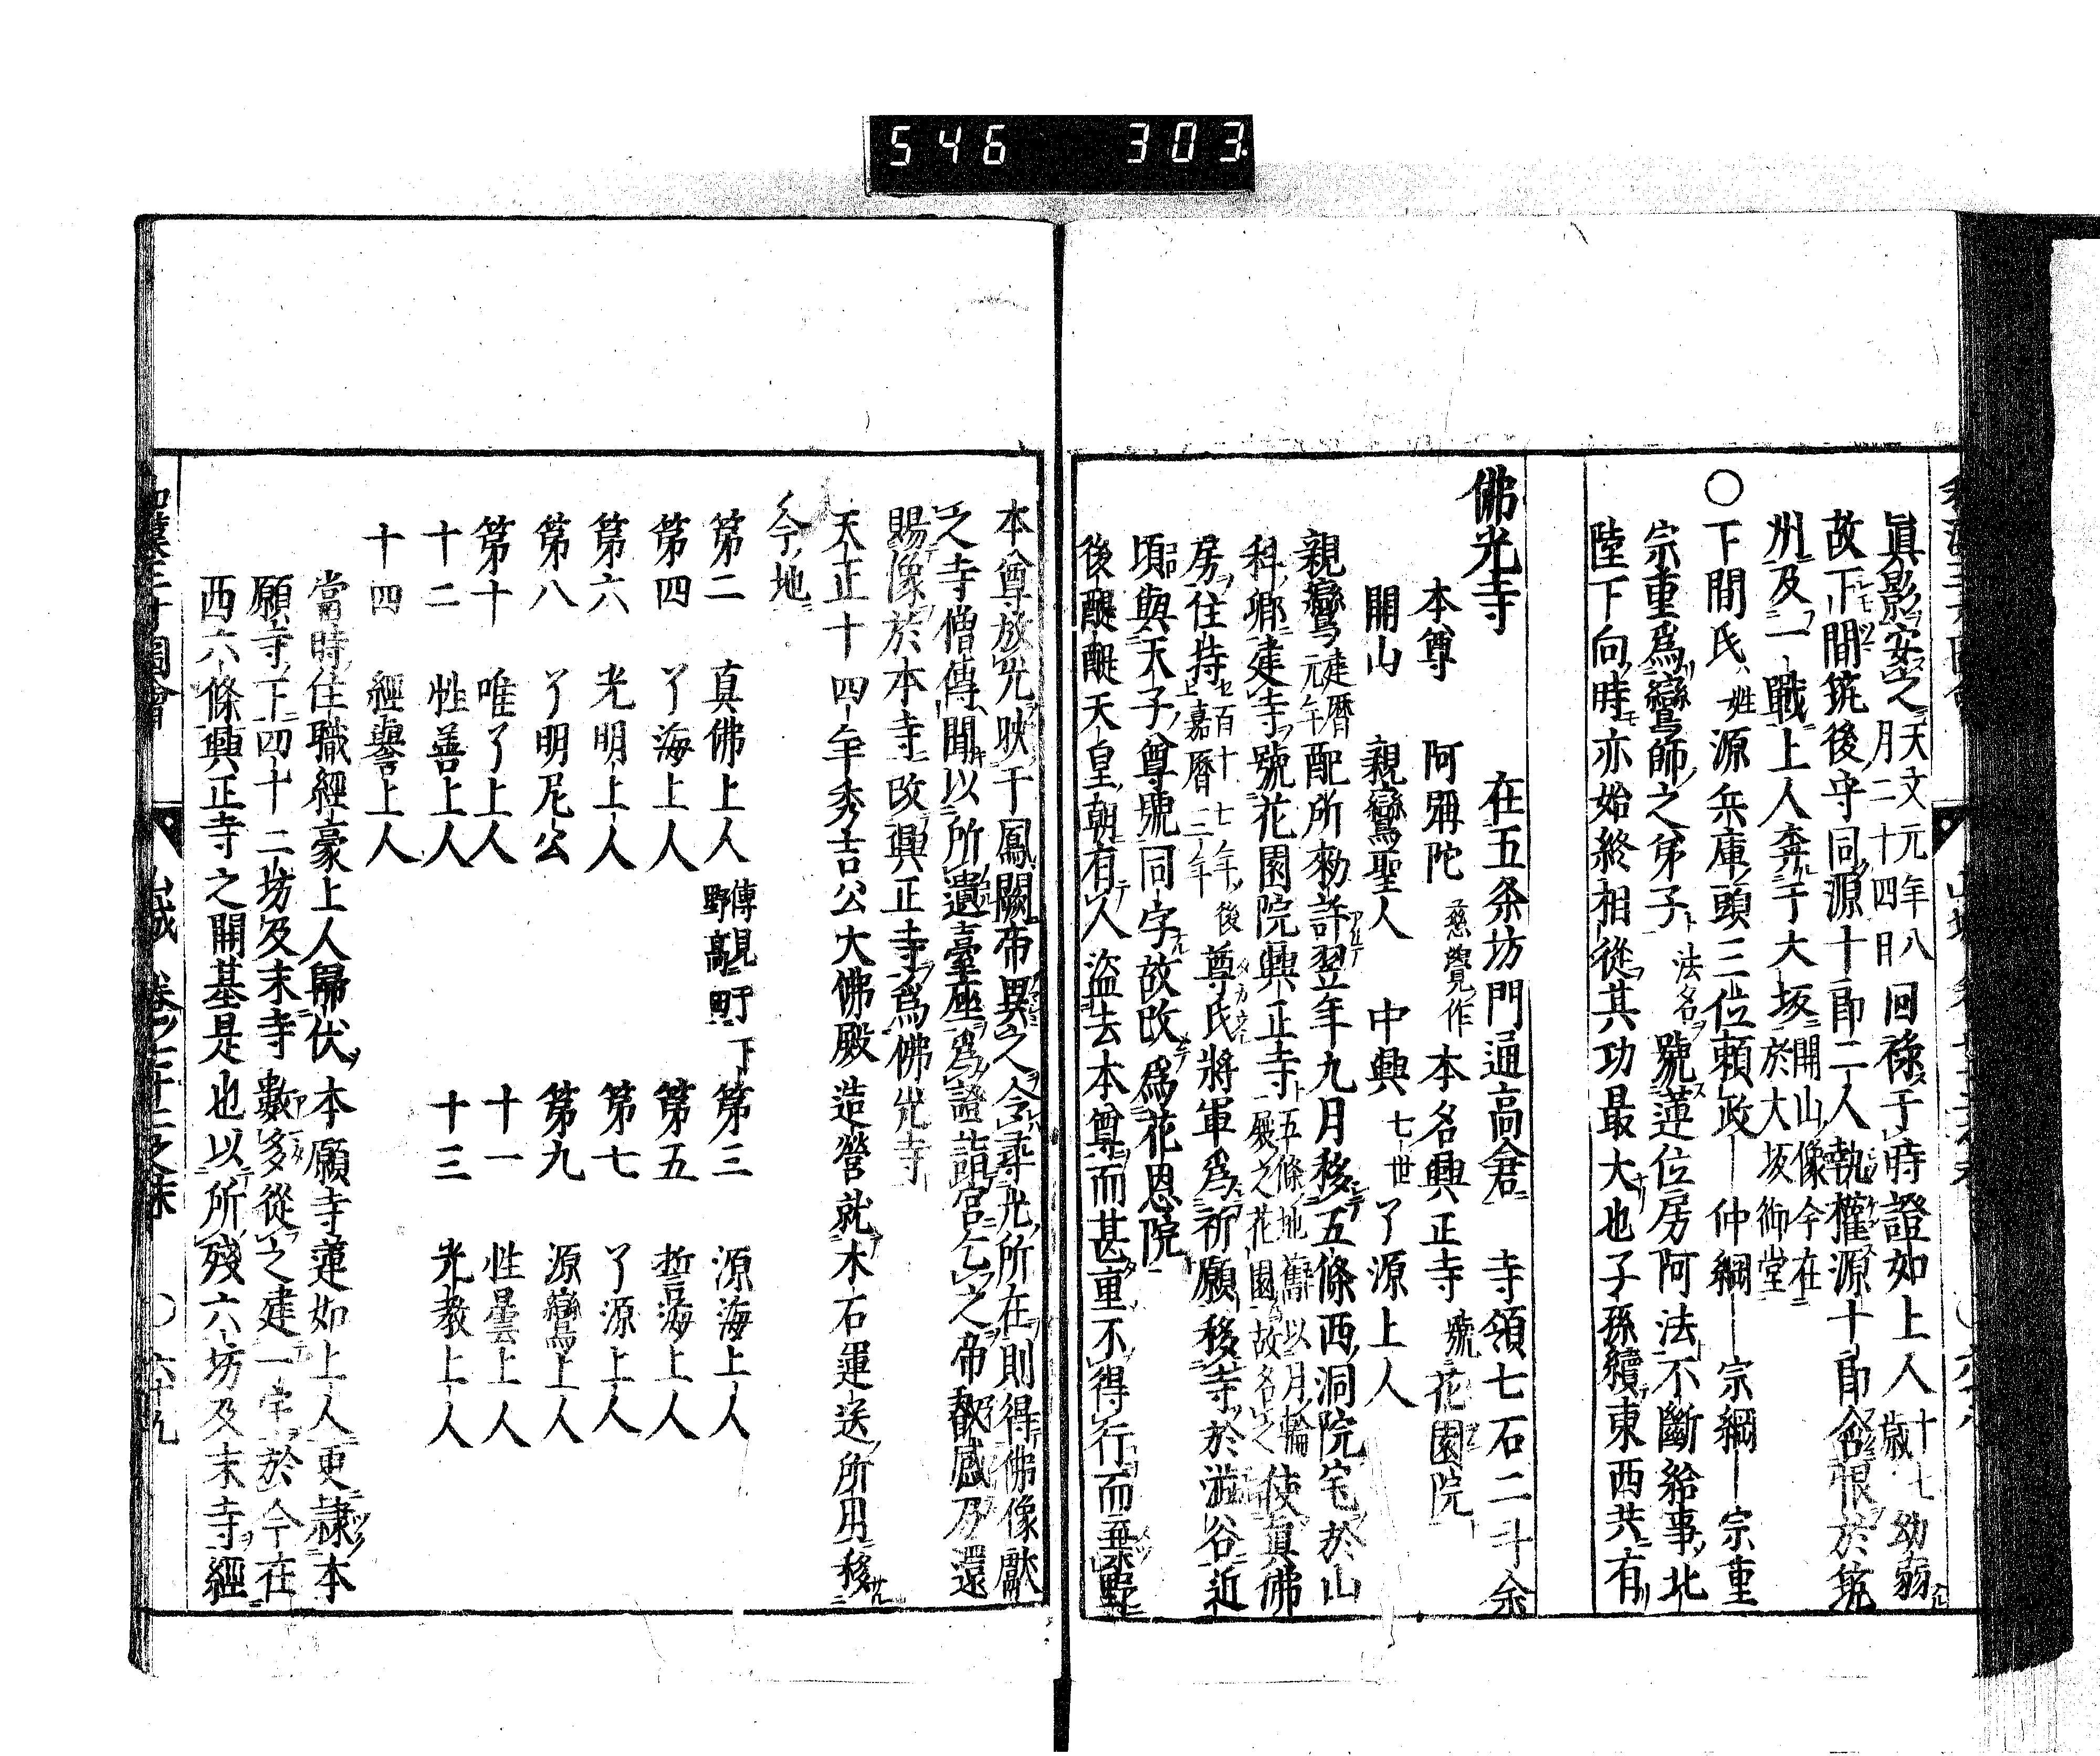 546 303
眞影安之天文元年八月二十四日回祿于時證如上人十七歳幼弱
故下間筑後守同源十郎二人執權源十郎含恨於筑
州及一戰上人奔于大坂開山像今在於大坂御堂
〇下間氏姓源兵庫頭三位頼政―仲綱―宗綱―宗重
宗重爲鸞師之弟子法名號蓮位房阿法不斷給事北
陸下向時亦始終相從其功最大也子孫續東西共有
佛光寺 在五条坊門通高倉 寺領七石二斗余
本尊 阿彌陀 慈覺作 本名興正寺 號花園院
開山 親鸞聖人 中興 七世 了源上人
親鸞建暦元年配所勅許翌年九月移五條西洞院宅於山
科郷建寺號花園院興正寺五條地舊以月輪殿之花園故名之使眞佛
房住持百十七年後嘉暦三年尊氏將軍爲祈願移寺於澁谷近
頃與天子尊號同字故改爲花恩院
後醍醐天皇朝有人盗去本尊而甚重不得行而棄野
本尊放光映于鳳闕帝異之令尋光所在則得佛像歟
之寺僧傳聞以所遺臺座爲證詣宮乞之帝叡感乃還
賜像於本寺改興正寺爲佛光寺
天正十四年秀吉公大佛殿造營就木石運送所用移
今地
第二 真佛上人 傳見于下野高田 第三 源海上人
第四 了海上人 第五 誓海上人
第六 光明上人 第七 了源上人
第八 了明尼公 第九 源鸞上人
第十 唯了上人 十一 性曇上人
十二 性善上人 十三 光教上人
十四 經譽上人
當時住職經豪上人歸伏本願寺蓮如上人更隷本
願寺下四十二坊及末寺數多從之建一宇於今在
西六條興正寺之開基是也以所殘六坊及末寺經